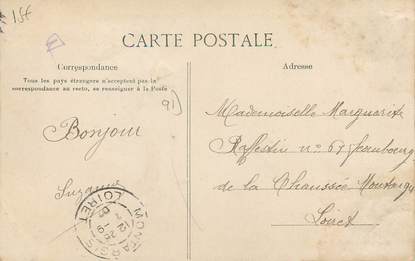 15f
CARTE POSTALE
Correspondance
Tous les pays étrangers n'acceptent pas la
correspondance au recto, se renseigner à la Poste
91)
Bonjour
Suzanne
Adresse
Mademoiselle Marguerite
n° 67 faubourg
de la Chaussée Montargis
Loiret
MONTARGIS
LOIRET